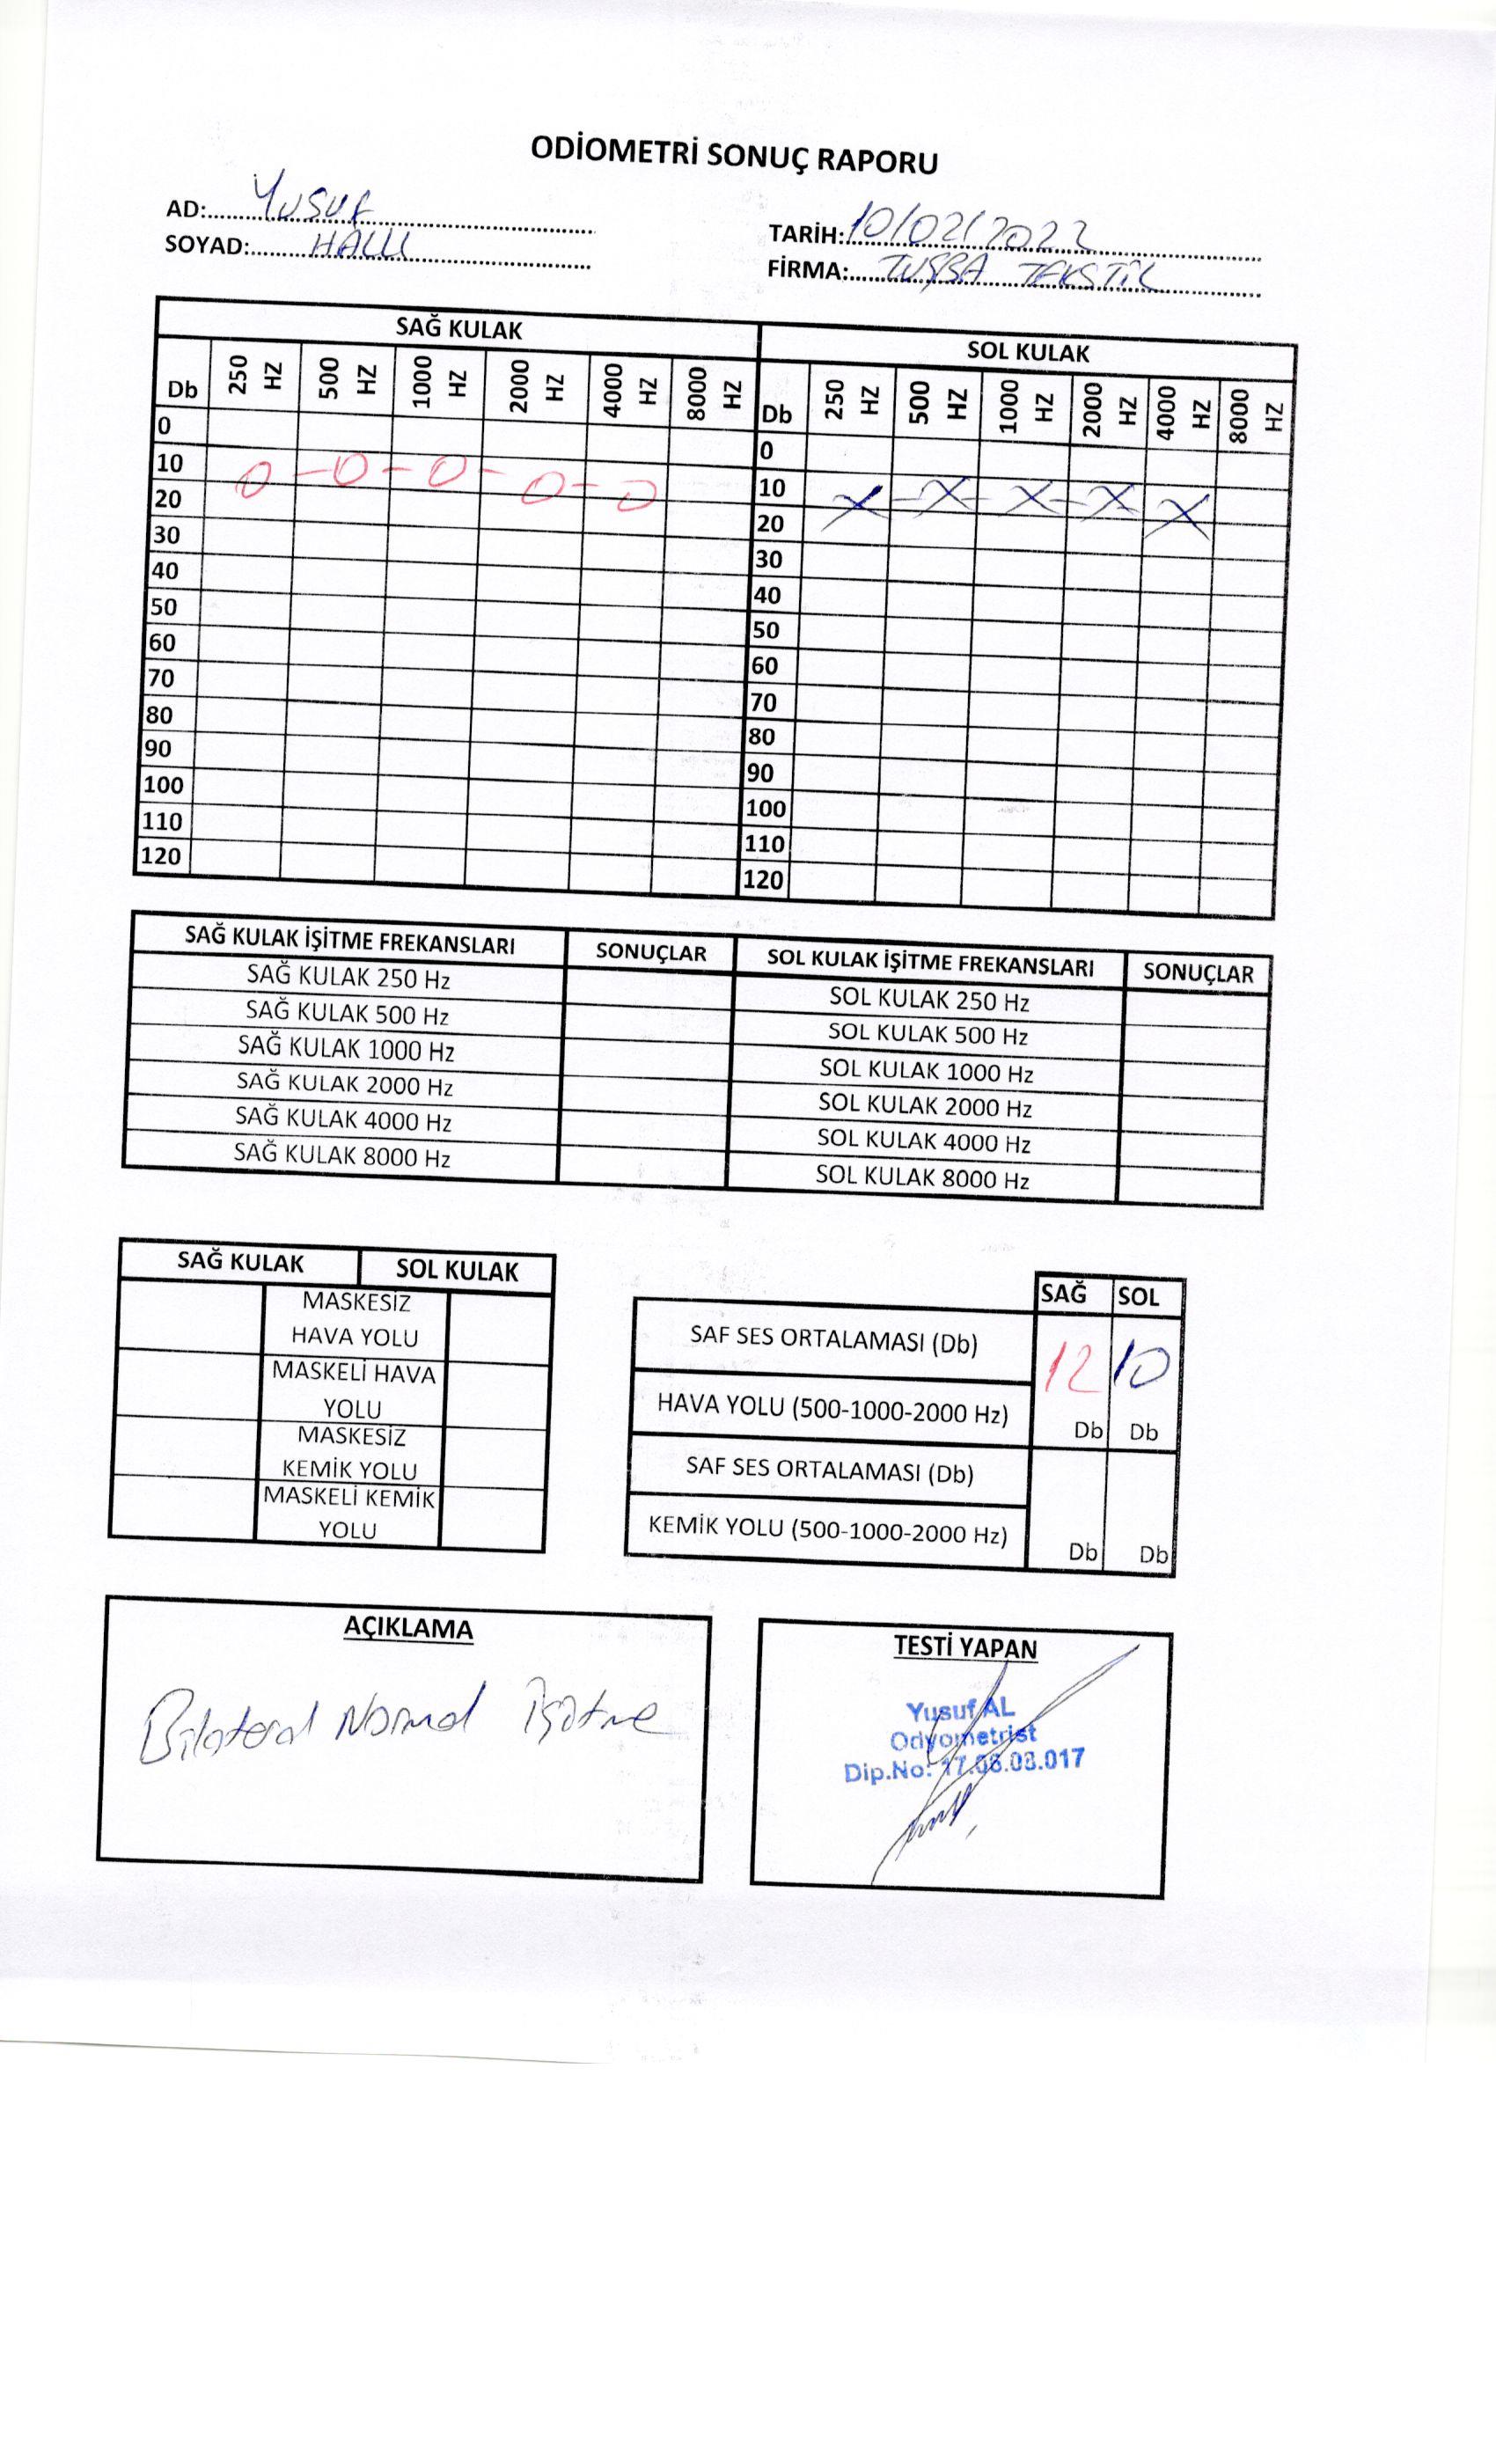 ODİOMETRİ SONUÇ RAPORU
AD: Yusuf
SOYAD: HALLI
TARİH: 10/02/2022
FİRMA: TUŞBA TEKSTİL
SAĞ KULAK SOL KULAK
Db 250 HZ 500 HZ 1000 HZ 2000 HZ 4000 HZ 8000 HZ Db 250 HZ 500 HZ 1000 HZ 2000 HZ 4000 HZ 8000 HZ
0 0
10 O - O - O - O - O 10 X - X - X - X X
20 20
30 30
40 40
50 50
60 60
70 70
80 80
90 90
100 100
110 110
120 120
SAĞ KULAK İŞİTME FREKANSLARI SONUÇLAR SOL KULAK İŞİTME FREKANSLARI SONUÇLAR
SAĞ KULAK 250 Hz SOL KULAK 250 Hz
SAĞ KULAK 500 Hz SOL KULAK 500 Hz
SAĞ KULAK 1000 Hz SOL KULAK 1000 Hz
SAĞ KULAK 2000 Hz SOL KULAK 2000 Hz
SAĞ KULAK 4000 Hz SOL KULAK 4000 Hz
SAĞ KULAK 8000 Hz SOL KULAK 8000 Hz
SAĞ KULAK SOL KULAK
MASKESİZ
HAVA YOLU
MASKELİ HAVA
YOLU
MASKESİZ
KEMİK YOLU
MASKELİ KEMİK
YOLU
SAĞ SOL
SAF SES ORTALAMASI (Db) 12 10
HAVA YOLU (500-1000-2000 Hz) Db Db
SAF SES ORTALAMASI (Db)
KEMİK YOLU (500-1000-2000 Hz) Db Db
AÇIKLAMA
Bilateral Normal İşitme
TESTİ YAPAN
Yusuf AL
Odyometrist
Dip.No: 17.08.03.017